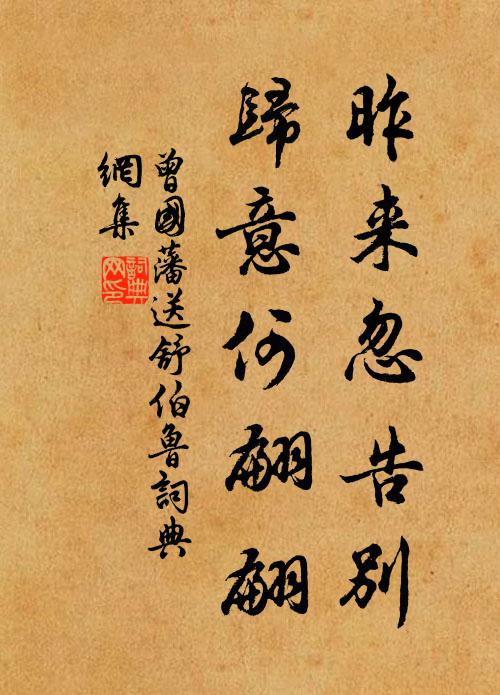 昨来忽告别
歸意何翩翩
曾國藩送舒伯魯詞典
網集
詞典網印